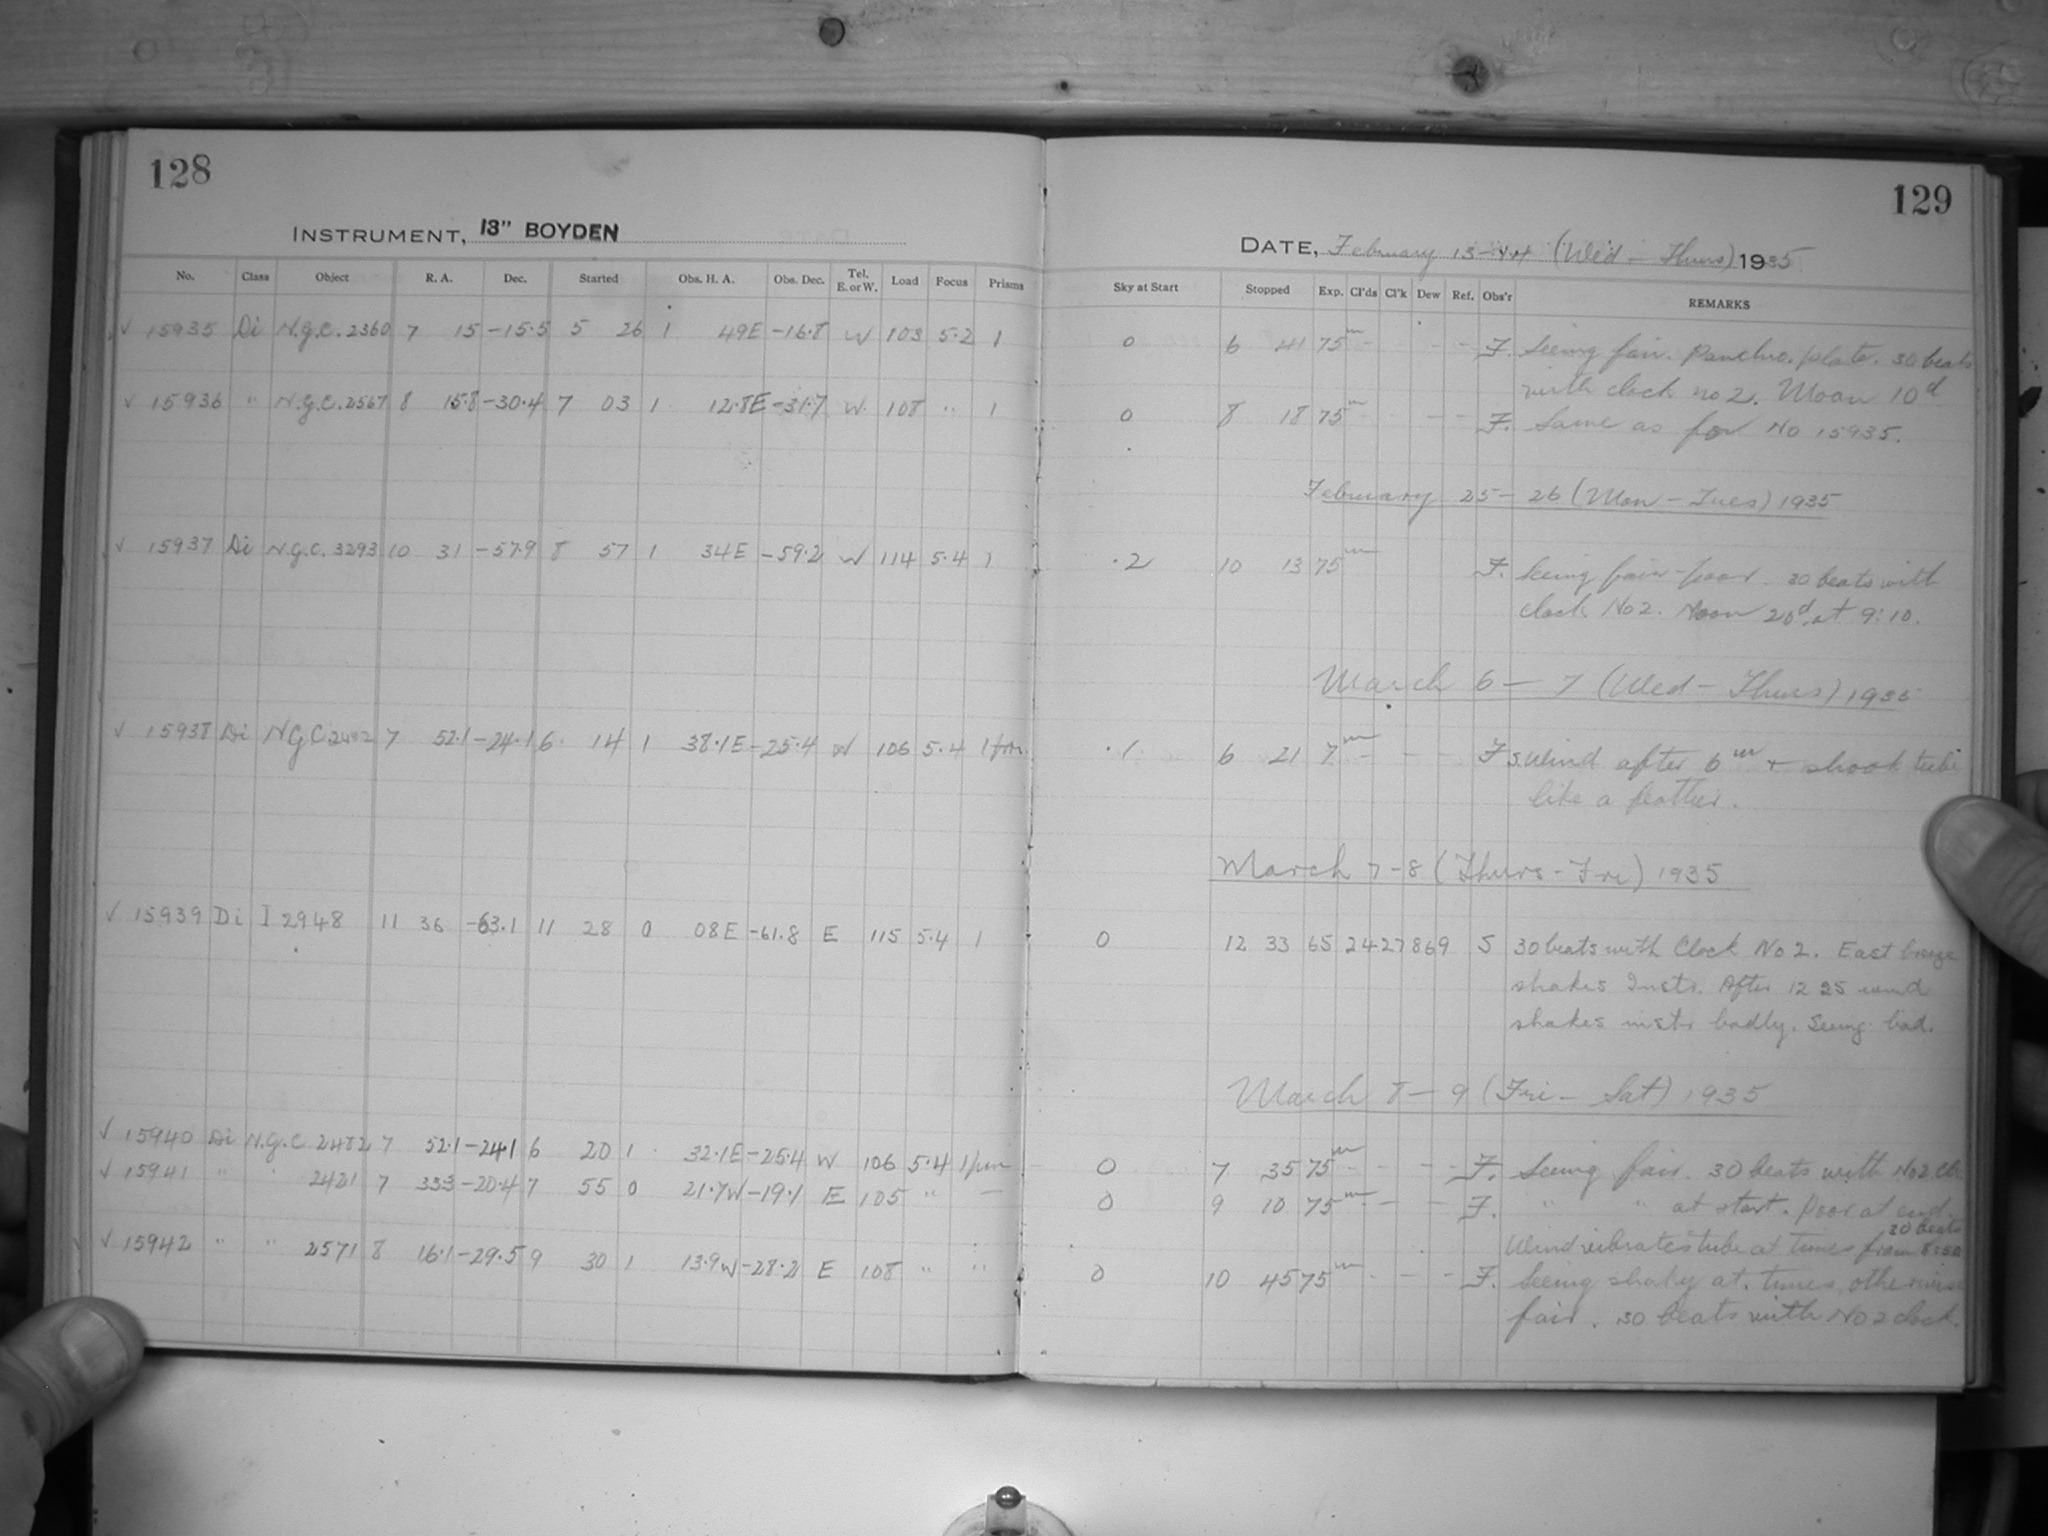 128
INSTRUMENT, 13" BOYDEN
No. Class Object R. A. Dec. Started Obs. H. A. Obs. Dec. Tel. E. or W. Load Focus Prisms
✓ 15935 Di N.G.C. 2360 7 15 -15.5 5 26 1 49E -16.8 W 103 5.2 1
✓ 15936 " N.G.C. 2567 8 15.8 -30.4 7 03 1 12.8E -31.7 W. 108 " 1
✓ 15937 Di N.G.C. 3293 10 31 -57.9 8 57 1 34E -59.2 W 114 5.4 1
✓ 15938 Di N G C 2482 7 52.1 -24.1 6 14 1 38.1E -25.4 W 106 5.4 1
✓ 15939 Di I 2948 11 36 -63.1 11 28 0 08E -61.8 E 115 5.4 1
✓ 15940 Di N.G.C 2482 7 52.1 -24.1 6 20 1 32.1E -25.4 W 106 5.4 1
✓ 15941 " " 2421 7 33.3 -20.4 7 55 0 21.7W -19.1 E 105 " —
✓ 15942 " " 2571 8 16.1 -29.5 9 30 1 13.9W -28.2 E 108 " "
129
DATE, February 13- (Wed - Thurs) 1935
Sky at Start Stopped Exp. Cl'ds Cl'k Dew Ref. Obs'r REMARKS
0 6 41 75m - - - F. Seeing fair. Panchro. plate. 30 beats
with clock no 2. Moon 10d
0 8 18 75m - - - F. Same as for No 15935.
February 25- 26 (Mon - Tues) 1935
.2 10 13 75m F. Seeing fair-poor. 30 beats with
clock No 2. Moon 20d at 9:10.
March 6 — 7 (Wed - Thurs) 1935
.1 6 21 7m - - - F S. Wind after 6m + shook tube
like a feather.
March 7-8 (Thurs - Fri) 1935
0 12 33 65 24 27 8 69 S 30 beats with Clock No 2. East breeze
shakes Instr. After 12 25 wind
shakes instr badly. Seeing bad.
March 8 — 9 (Fri - Sat) 1935
0 7 35 75m - - - - F. Seeing fair. 30 beats with No 2 Clk
0 9 10 75m - - - F. " " at start. Poor at end.
30 beats
Wind vibrates tube at times from 8:50
0 10 45 75m - - - F. Seeing shaky at times, otherwise
fair. 30 beats with No 2 clock.